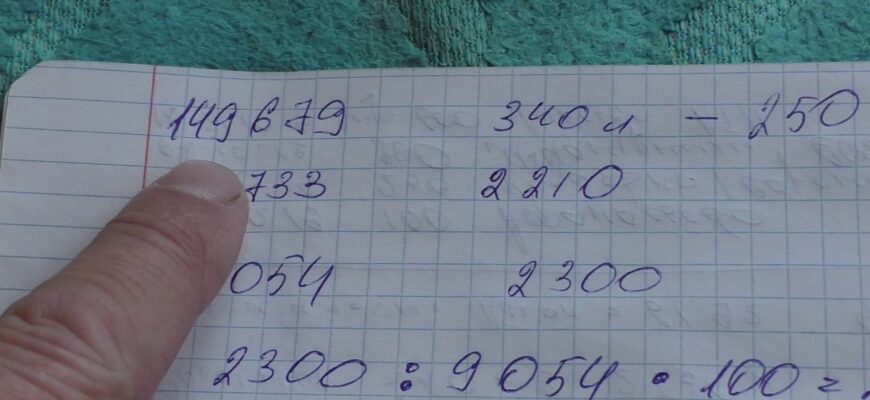 149679 340 л. - 250
733 2210
054 2300
2300 : 9054 • 100 =